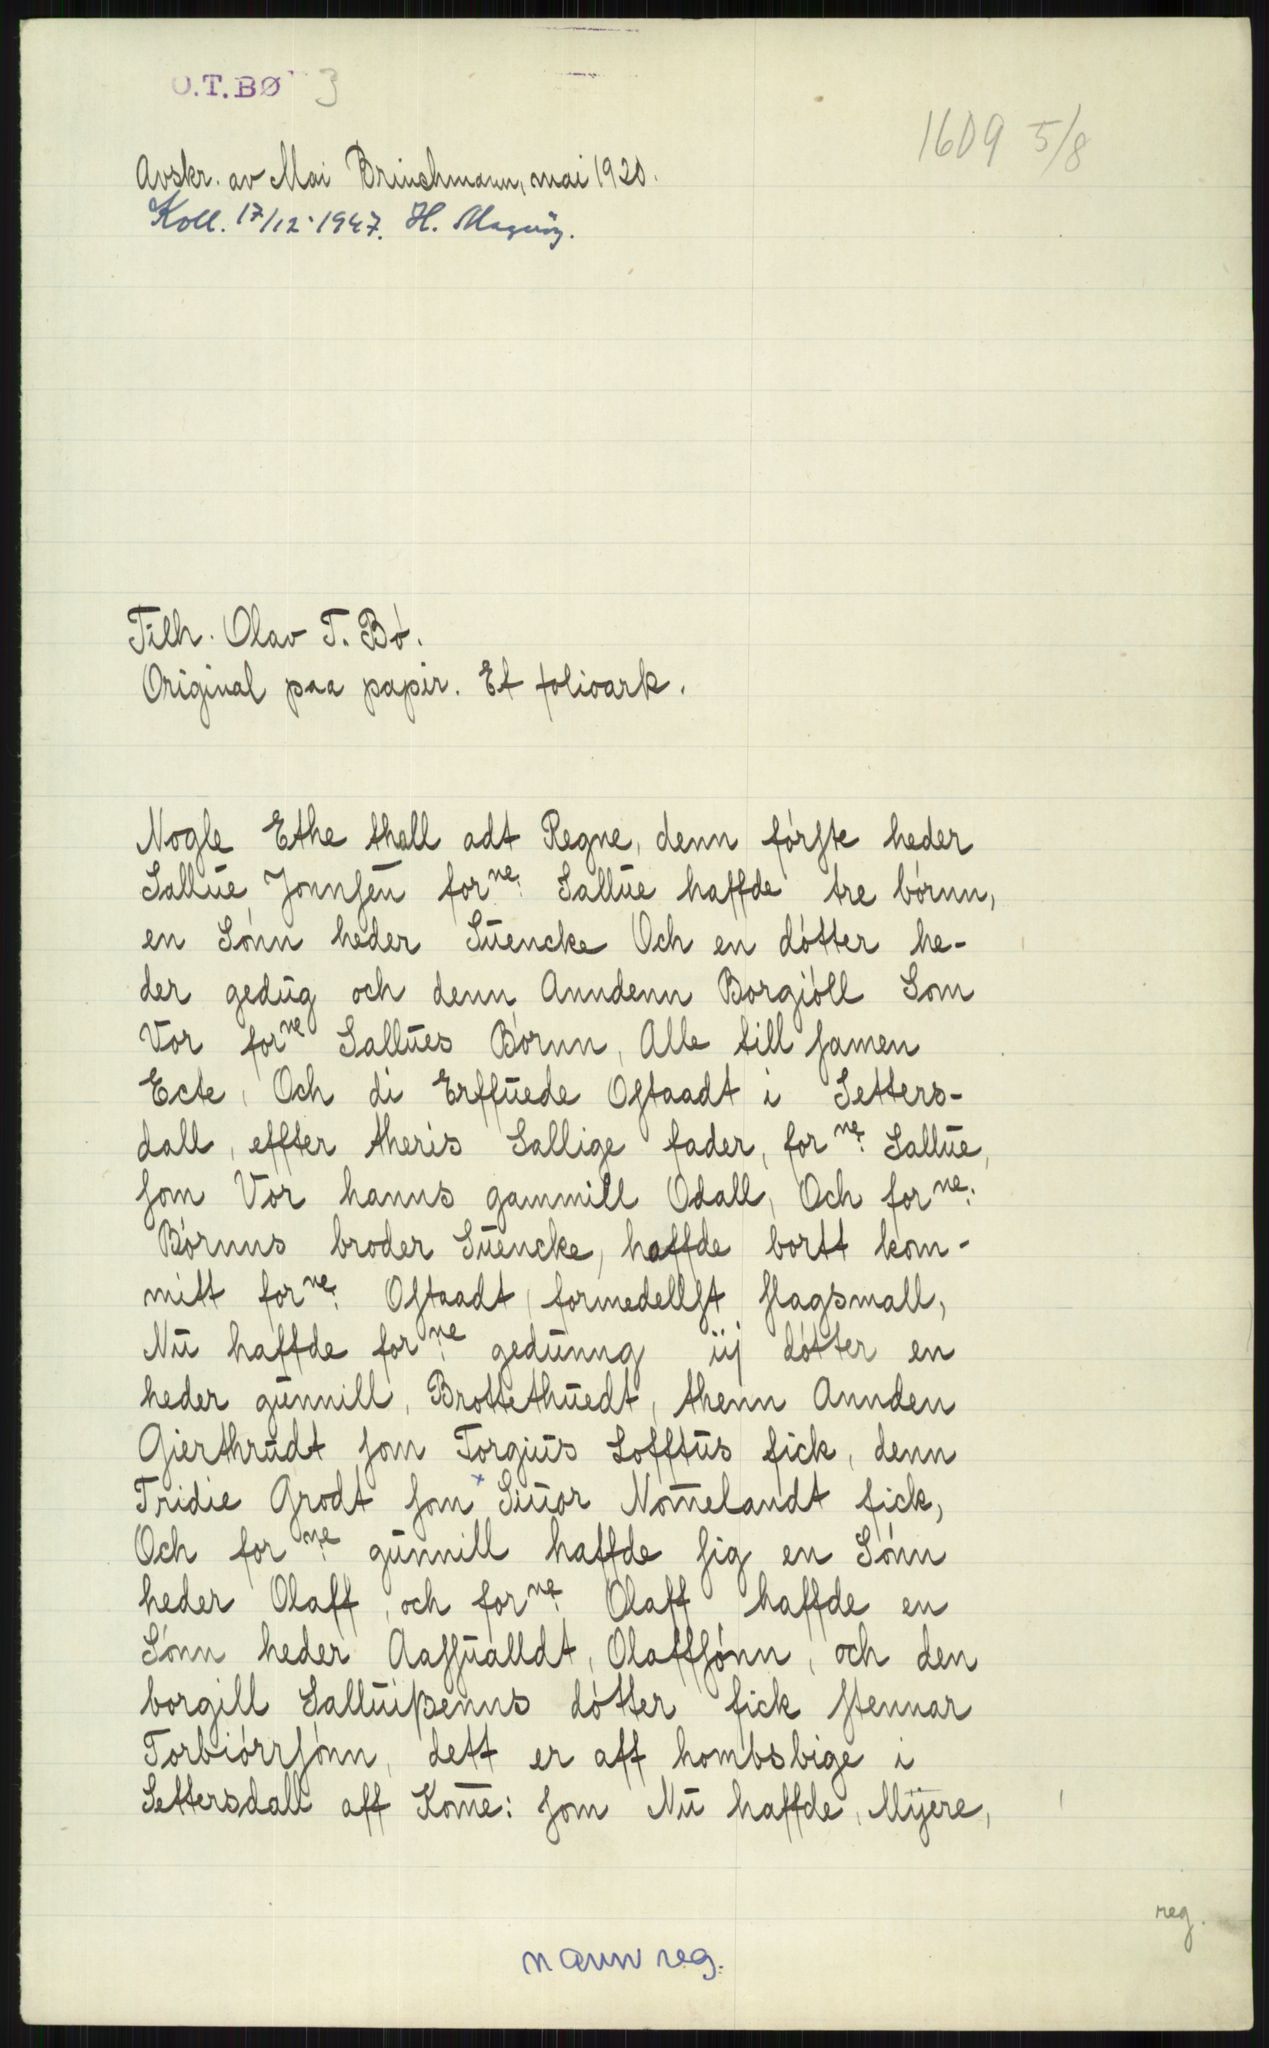 O.T.BØ 3
1609 5/8
Avskr. av Mai Brinchmann, mai 1920.
Koll. 17/12.1947. H.
Tilh. Olav T. Bø.
Original paa papir. Et folioark.
Nogle Ethe thall adt Regne, denn førſte heder
Sallūe Jonnſēn for ⁿᵉ: Sallūe haffde tre børnn,
en Sønn heder Sūencke Och en døtter he-
der gedūg och denn Anndenn Borgiøll Som
Vor for ⁿᵉ: Sallūes Børnn, Alle till ſamen
Ecte, Och di Erffūede Oſtaadt i Setters-
dall, effter theris Sallige fader, for ⁿᵉ: Sallūe,
ſom Vor hanns gammill Odall, Och for ⁿᵉ:
Børnns broder Sūencke, haffde bortt kom-
mitt for ⁿᵉ: Oſtaadt, formedellſt ſlagsmall,
Nū haffde for ⁿᵉ: gedūnng iij døtter en
heder gūnnill, Brottethūedt, thenn Annden
Gierthrūdt ſom Torgiūs Lofftūs fick, denn
Tridie Grodt ſom x Siūor Nom̄elandt fick,
Och for ⁿᵉ: gūnnill haffde ſig en Sønn
heder Olaff, och for ⁿᵉ: Olaff haffde en
Sønn heder Aaſſūalldt, Olaffſønn, och den
borgill Sallūißenns døtter fick ſtennar
Torbiørrſønn, dett er aff hombsbige i
Settersdall aff Kom̄e: ſom Nū haffde, Mÿere,
reg.
navn reg.